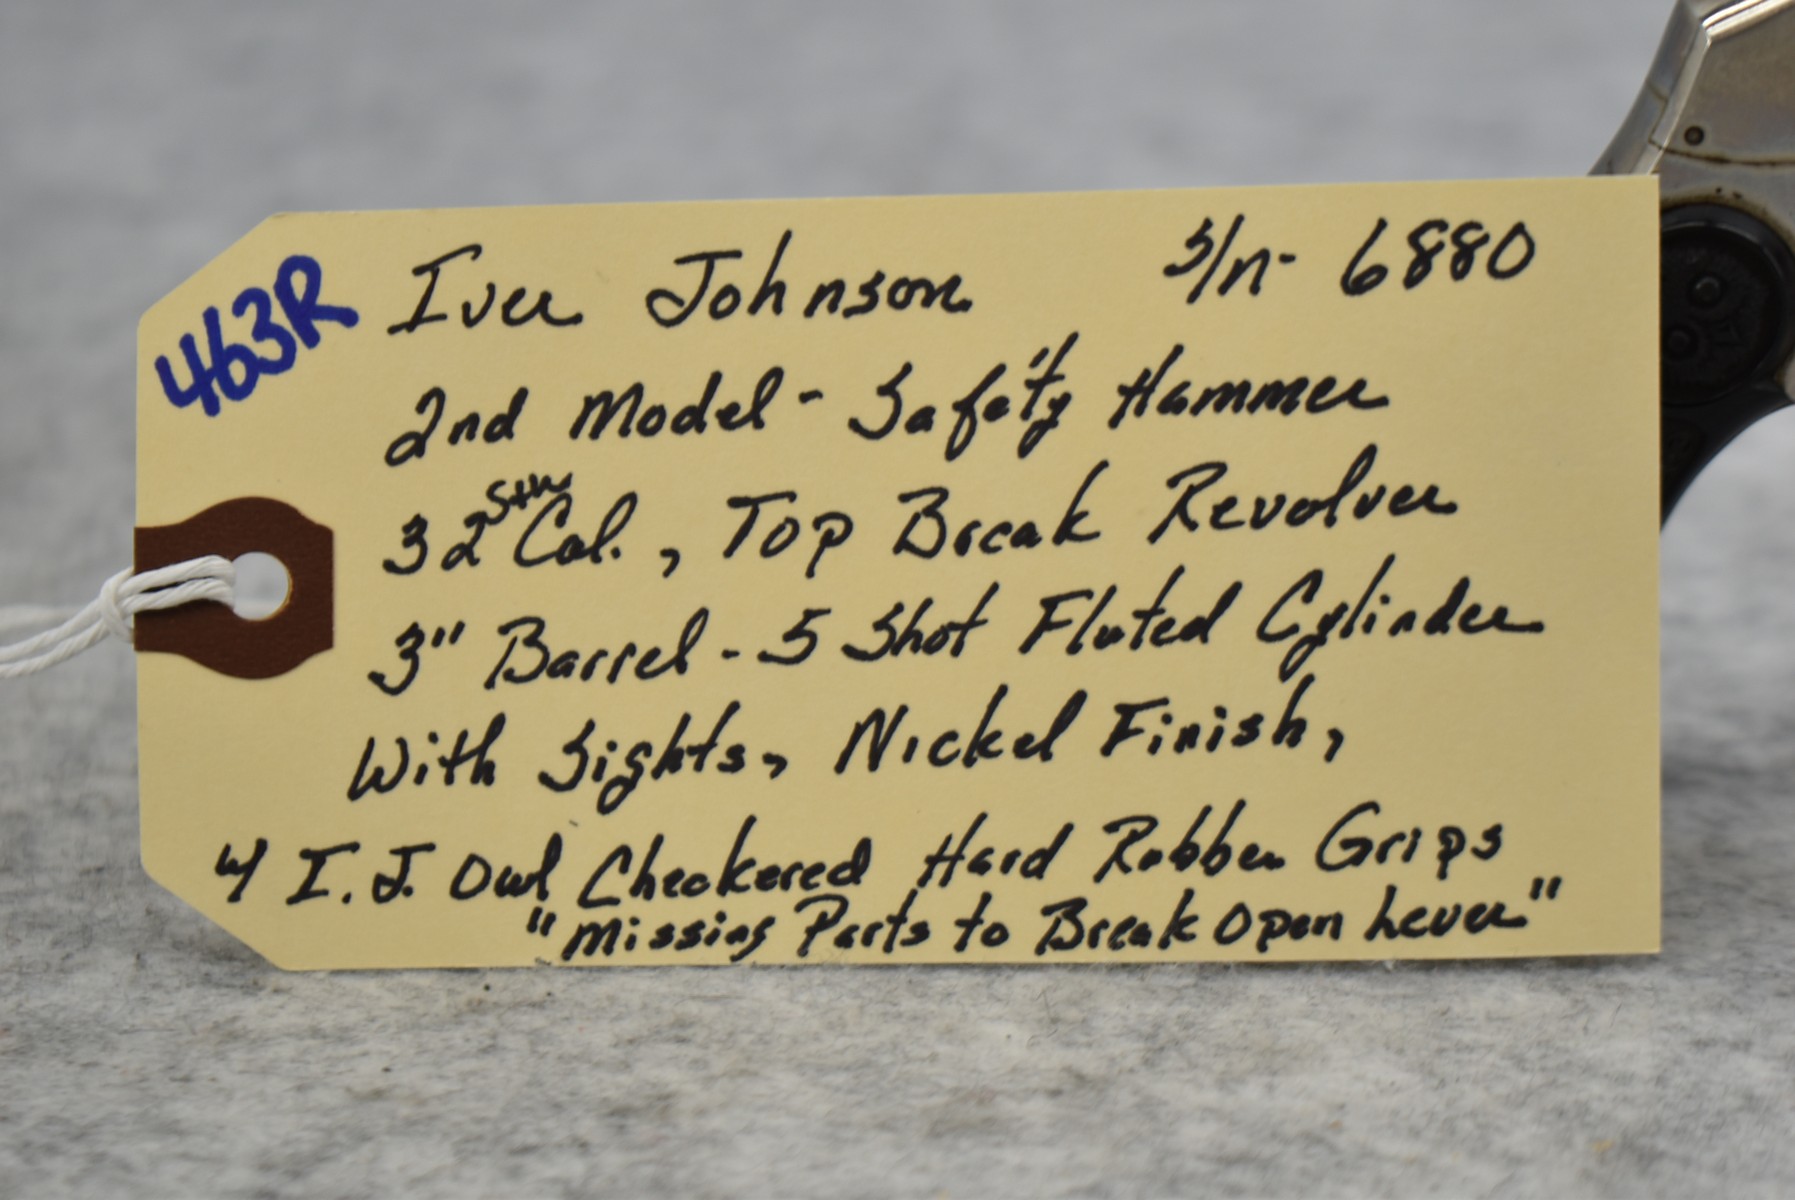 463R
Iver Johnson s/n- 6880
2nd Model - Safety Hammer
32 S+W Cal., Top Break Revolver
3" Barrel - 5 Shot Fluted Cylinder
With Sights, Nickel Finish,
w/ I.J. Owl Checkered Hard Rubber Grips
"Missing Parts to Break Open Lever"